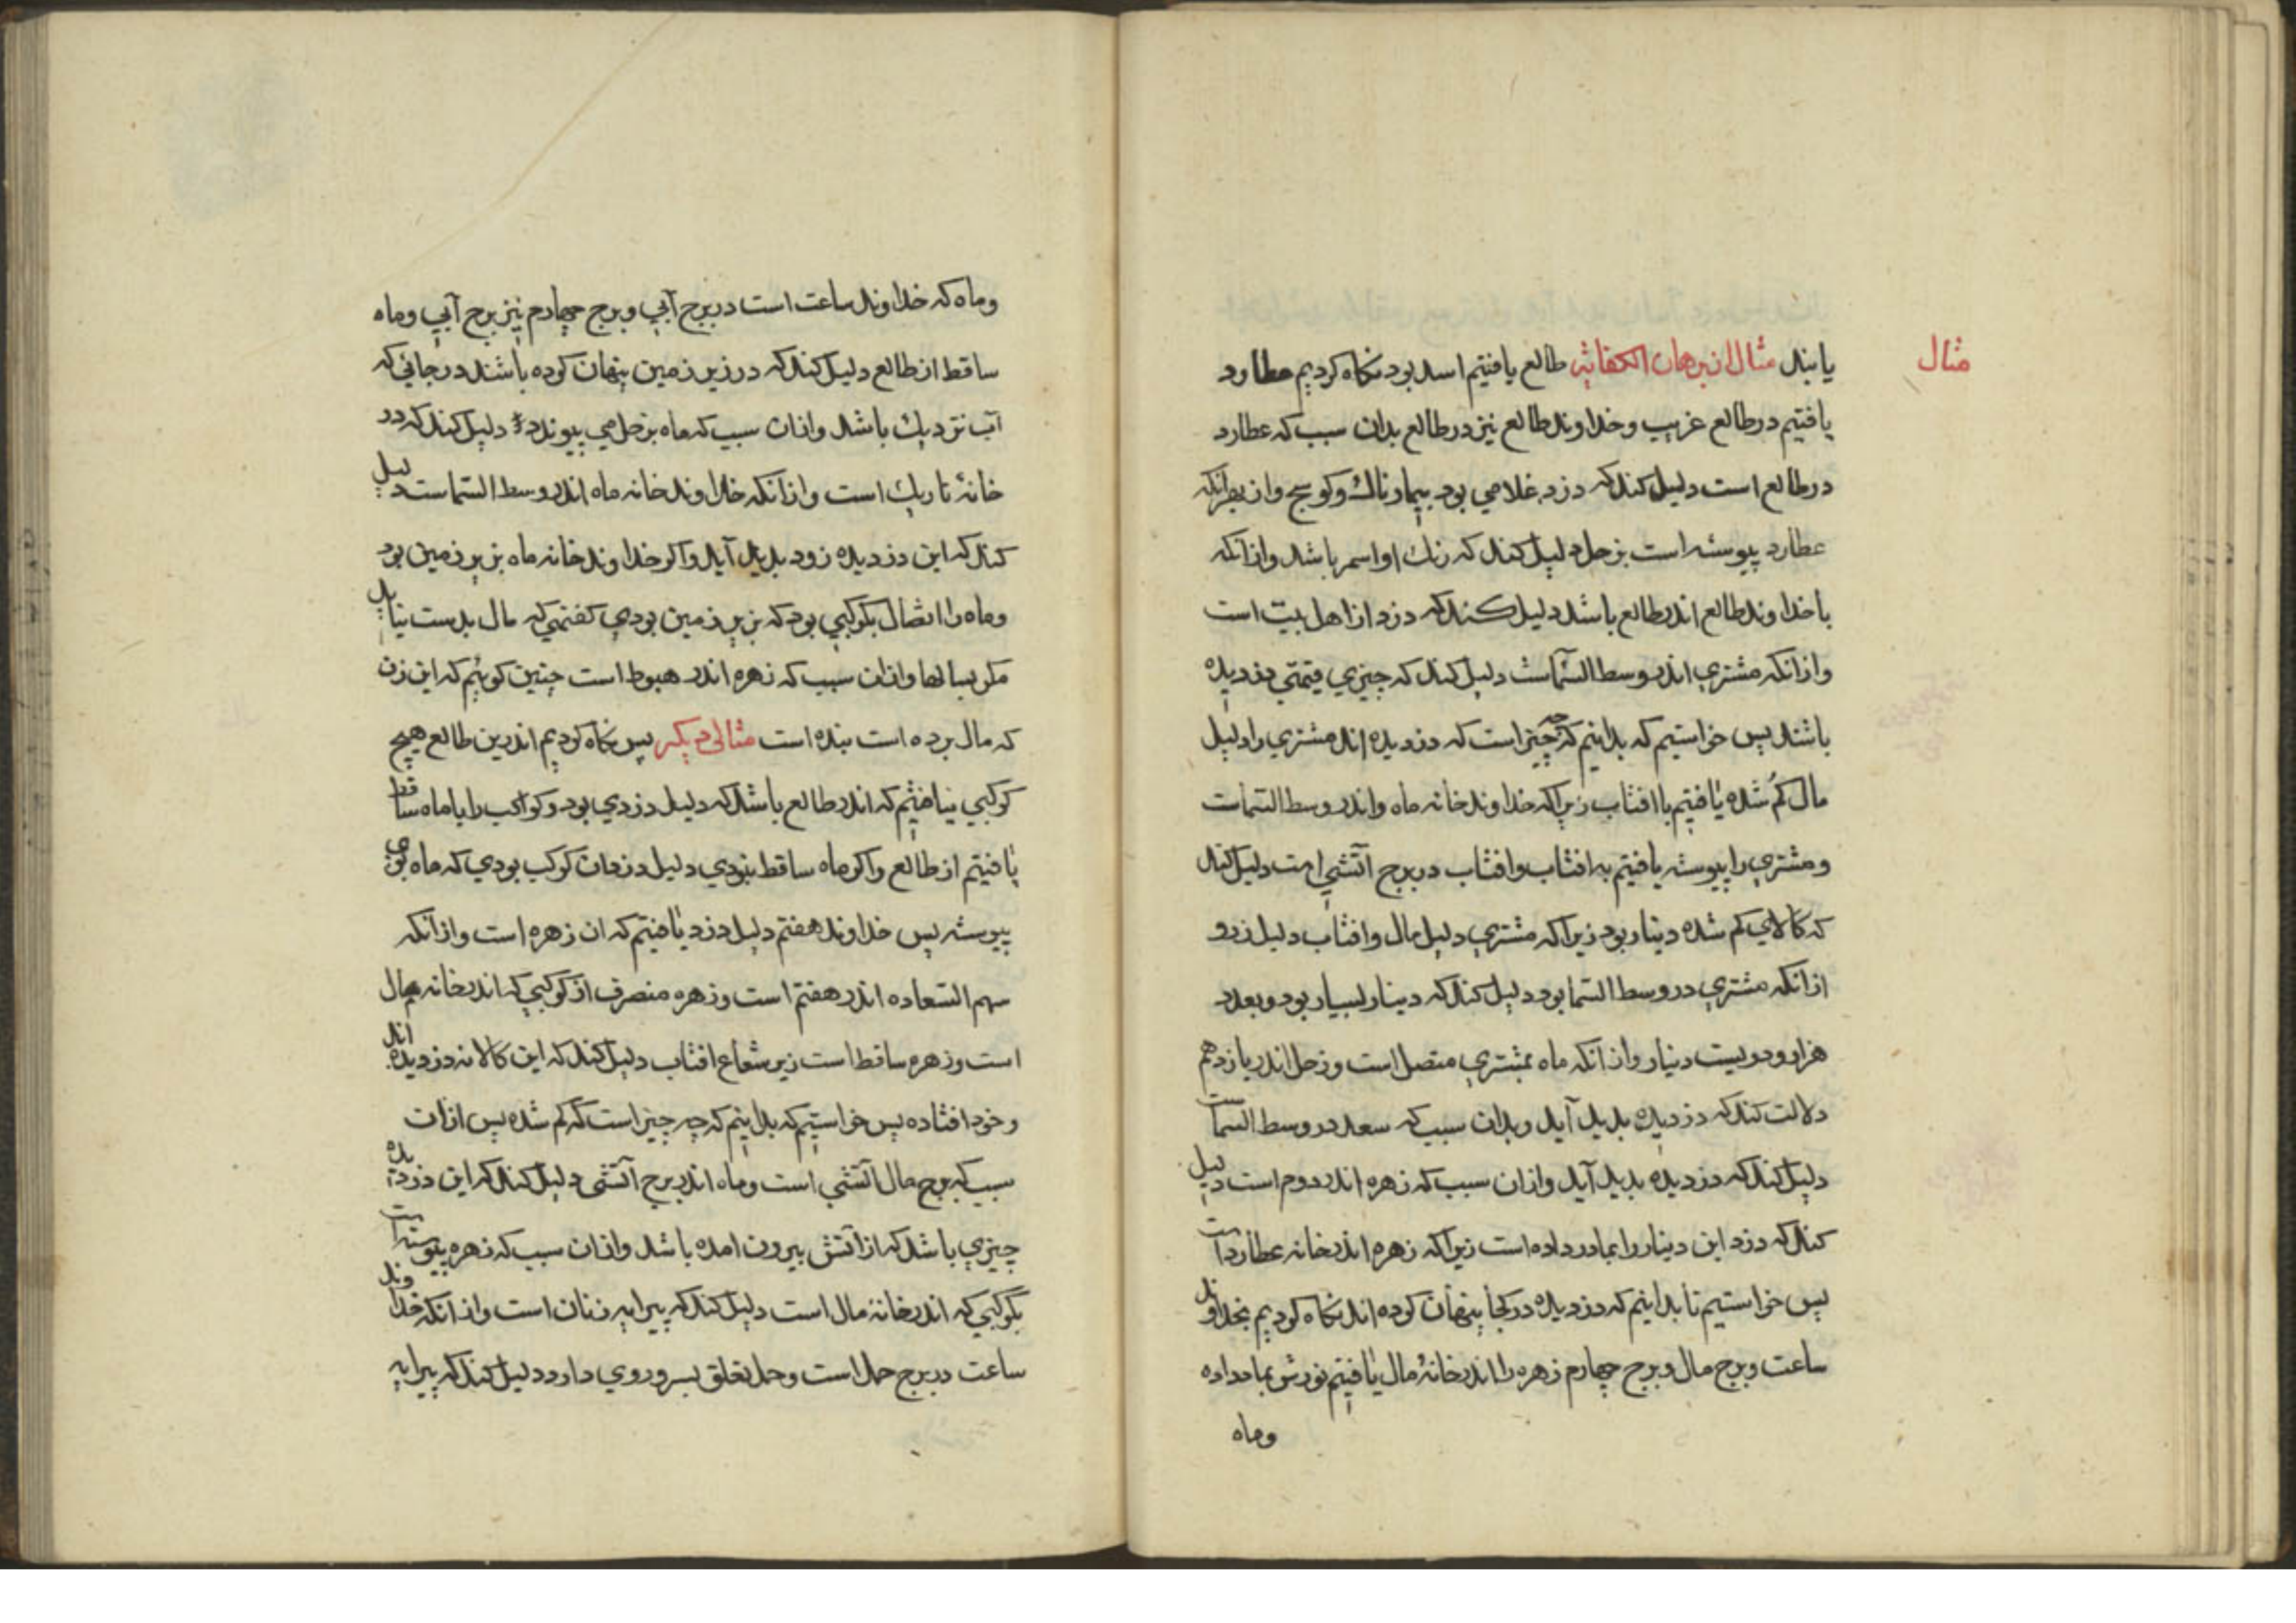 مثال
یابند مثال از برهان الکفایه طالع یافتیم اسد بود نکاه کردیم عطارد
یافتیم در طالع غریب و خداوند طالع نیز در طالع بدان سبب که عطارد
در طالع است دلیل کند که دزد غلامی بود بیمارناک و کوسج و از بهر انکه
عطارد پیوسته است بزحل دلیل کند که رنک او اسمر باشد و از انکه
با خداوند طالع اندر طالع باشد دلیل کند که دزد از اهل بیت است
و از انکه مشتری اندر وسط السّماست دلیل کند که چیزی قیمتی دزدیده
باشد پس خواستیم که بدانیم که چه چیز است که دزدیده اند مشتری را دلیل
مال کم شده یافتیم با افتاب زیرا که خداوند خانه ماه و اندر وسط السّماست
و مشتری را پیوسته یافتیم به افتاب و افتاب در برج آتشی است دلیل کند
که کالای کم شده دینار بود زیرا که مشتری دلیل مال و افتاب دلیل زر و
از انکه مشتری در وسط السّما بود دلیل کند که دینار بسیار بود و بعدد
هزار و دویست دینار و از انکه ماه بمشتری متصل است و زحل اندر یازدهم
دلالت کند که دزدیده پدید آید و بدان سبب که سعد در وسط السّماست
دلیل کند که دزدیده پدید آید و از ان سبب که زهره اندر دوم است دلیل
کند که دزد این دینار را بمادر داده است زیرا که زهره اندر خانه عطارد است
پس خواستیم تا بدانیم که دزدیده در کجا پنهان کرده اند نکاه کردیم بخداوند
ساعت و برج مال و برج چهارم زهره را اندر خانهٔ مال یافتیم نورش بماه داده
وماه
و ماه که خداوند ساعت است در برج آبی و برج چهارم نیز برج آبی و ماه
ساقط از طالع دلیل کند که در زیر زمین پنهان کرده باشند در جائی که
آب نزدیک باشد و از ان سبب که ماه بزحل می پیوندد دلیل کند که در
خانهٔ تاریک است و از انکه خداوند خانه ماه اندر وسط السّماست دلیل
کند که این دزدیده زود پدید آید و اکر خداوند خانه ماه بزیر زمین بود
و ماه را اتصال بکوکبی بود که بزیر زمین بودی کفتمی که مال بدست نیاید
مکر بسالها و از ان سبب که زهره اندر هبوط است چنین کوئیم که این زن
که مال برده است بنده است مثالی دیکر پس نکاه کردیم اندرین طالع هیچ
کوکبی نیافتیم که اندر طالع باشد که دلیل دزدی بود و کواکب را با ماه ساقط
یافتیم از طالع و اکر ماه ساقط نبودی دلیل دزد ان کوکب بودی که ماه بوی
پیوسته پس خداوند هفتم دلیل دزد یافتیم که ان زهره است و از انکه
سهم السّعاده اندر هفتم است و زهره منصرف از کوکبی که اندر خانه مال
است و زهره ساقط است زیر شعاع افتاب دلیل کند که این کالا نه دزدیده اند
و خود افتاده پس خواستیم که بدانیم که چه چیز است که کم شده پس از ان
سبب که برج مال آتشی است و ماه اندر برج آتشی دلیل کند که این دزدیده
چیزی باشد که از آتش بیرون امده باشد و از ان سبب که زهره پیوسته است
بکوکبی که اندر خانهٔ مال است دلیل کند که پیرایه زنان است و از انکه خداوند
ساعت در برج حمل است و حمل تعلق بسر و روی دارد دلیل کند که پیرایه